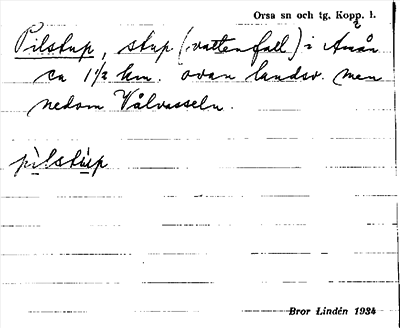 Orsa sn och tg. Kopp. l.
Pilstup, stup (vattenfall) i Amån
ca 1½ km. ovan landsv. men
nedom Vålvasseln.
pìlstùp
Bror Lindén 1934